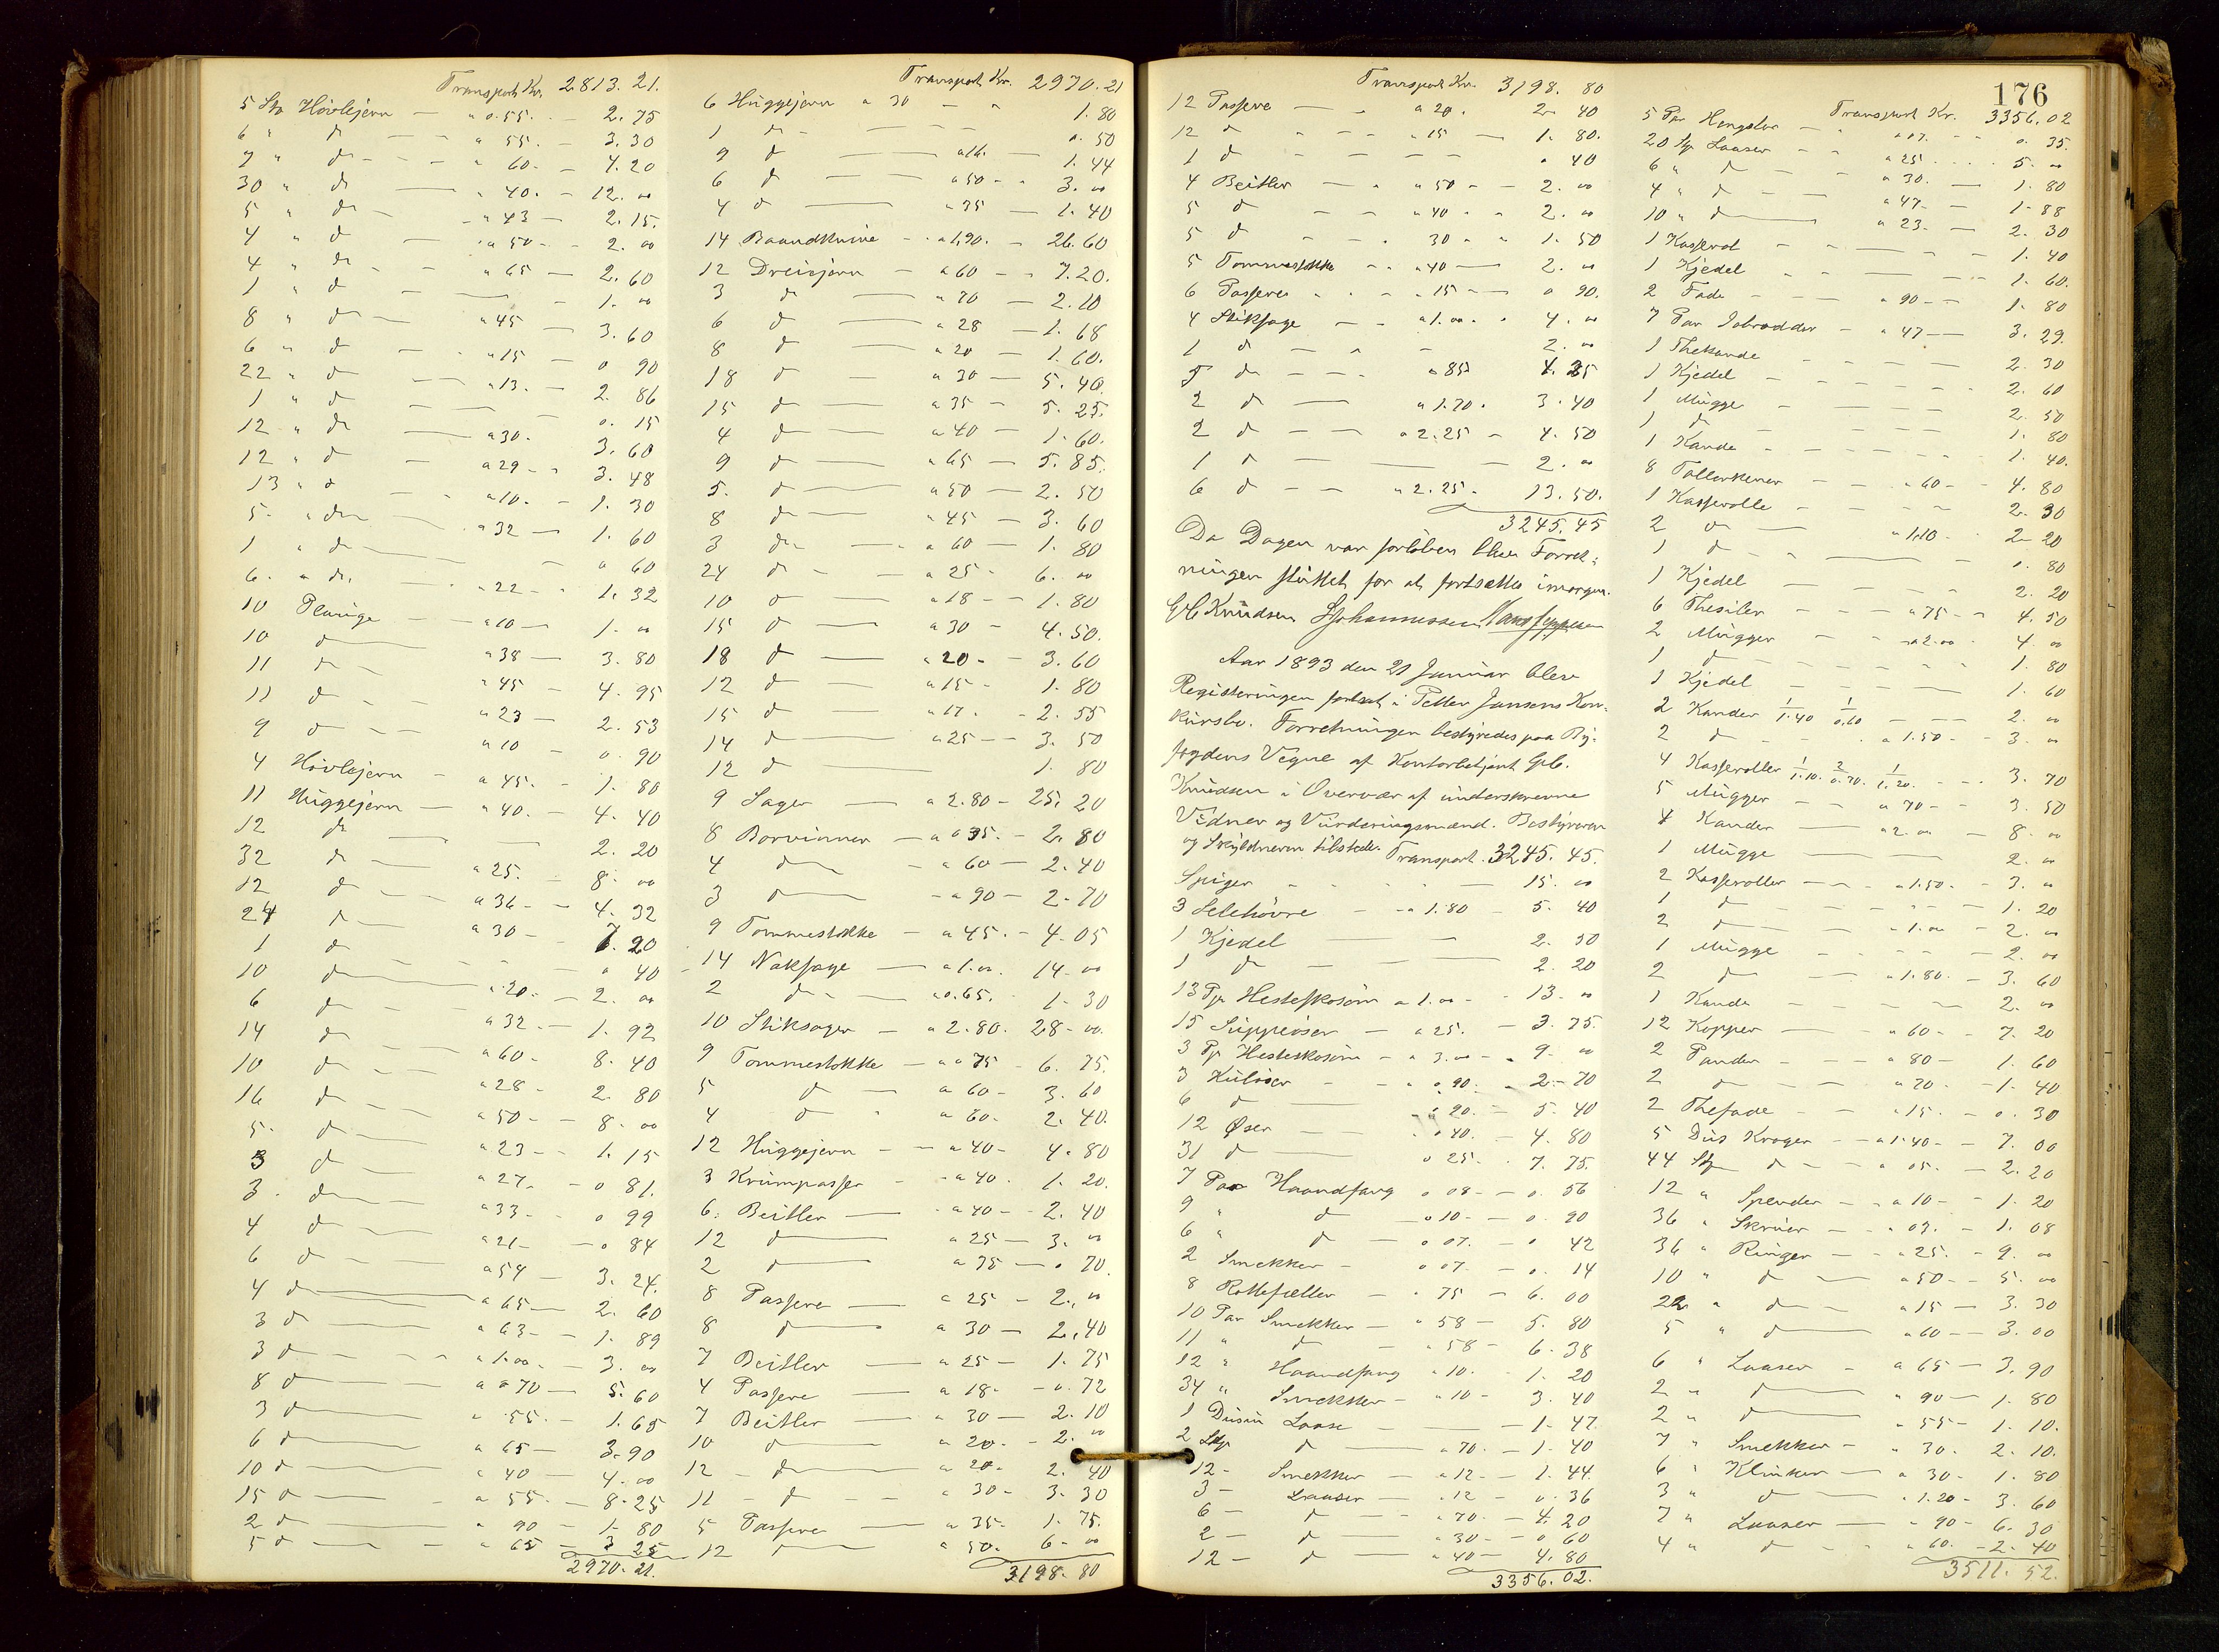 Transport Kr. 2813.21.
5 Stk Høvlejern — a 0.55. — 2.75
6 " do — — a 55. — 3.30
7 " do - - a 60. — 4.20
30 " do — " 40. — 12. "
5 " do — " 43 — 2.15.
4 " do — " 50 - - 2. "
4 " do - - " 65 — 2.60
1 " do — — 1. "
8 " do — " 45 — 3.60
6 " do — " 15 — 0 90
22 " do — " 13. — 2. 86
1 " do — — 0. 15
12 " do — a 30. 3. 60
12 " do — a 29 - - 3. 48
13 " do - - a 10. - 1. 30
5 " do — a 32 — 1. 60
1 " do — — " 60
6 " do. — " 22 - - 1. 32
10 Plauge — " 10 — 1. "
10 do — " 38 — 3. 80
11 do - " 45 — 4. 95
11 do - - " 23 — 2. 53
9 do - - " 10 — 0. 90
4 Høvlejern — a 45. — 1. 80
11 Huggejern — " 40. - 4. 40
12 do — — 2. 20
32 do — a 25. — 8. "
12 do - - a 36 - - 4. 32
24 do — a 30 — 7. 20
1 do - - - " 40
10 do — " 20. — 2. "
6 do - - a 32 — 1. 92
14 do — a 60 - 8. 40
10 do - - a 28 - 2. 80
16 do - - a 50 - - 8. "
5 do — a 23 - - 1. 15
3 do — a 27. - 0 81.
3 do — a 33 - - 0 99
4 do — a 21 — 0 84
6 do — a 54 — 3. 24.
4 do — a 65 — 2. 60
3 do — a 63 — 1. 89
3 do - - " 1.00. — 3. "
8 do — a 0 70 — 5. 60
3 do — " 55. — 1. 65
6 do — a 65 — 3. 90
10 do — " 40 — 4. "
15 do — a 55. — 8. 25
2 do — " 90 — 1. 80
5 do — - " 65 — 3 25
2970.21.
Transport Kr. 2970.21
6 Huggejern a 30 — " 1. 80
1 do - - - 0. 50
9 do — a 16. — 1. 44
6 do — a 50 - - 3. "
4 do — " 35 — 1. 40
14 Baandknive - a 1,90. — 26.60
12 Dreisjern — a 60 - - 7.20.
3 do — " 70 — 2.10
6 do — " 28 — 1. 68
8 do — " 20 — 1. 60.
18 do — " 30 — 5. 40.
15 do — a 35 — 5. 25.
4 do — a 40 — 1. 60.
9 do — a 65 — 5. 85.
5. do — a 50 — 2. 50
8 do — " 45 — 3. 60
3 do — a 60 — 1. 80
24 do - — a 25 - 6. "
10 do — a 18 - - 1. 80
15 do — a 30 — 4. 50.
18 do — " 20 - - 3. 60
12 do — a 15 - 1. 80
15 do — " 17. - 2. 55
14 do — a 25 - - 3. 50
12 do — 1. 80
9 Sager — a 2.80 - 25. 20
8 Borvinner — a 0 35. - 2. 80
4 do — a 60 — 2. 40
3 do — a 90 - 2. 70
9 Tommestokke — a 45. - 4. 05
14 Naksage — a 1.00. 14. "
2 do - — a 0.65. 1. 30
10 Stiksager — a 2.80. 28. 00.
9 Tommestokke — a 0 75 - 6. 75.
5 do — a 60 - 3. 60
4 do " a 60. 2. 40.
12 Huggejern — a 40 - 4. 80
3 Krumpasser - a 40. 1. 20.
6. Beitler — a 40 - - 2. 40
12 do — a 25 — 3. "
2 do — a 35 — 0 70.
8 Passere — a 25 — 2. "
8 do — a 30 — 2. 40
7 Beitler — a 25 — 1. 75
4 Passere — a 18. - 0. 72
7 Beitler — a 30 — 2. 10
10 do — a 20. - 2. "
12 - do — a 20. 2. 40
11 - do — - a 30 - 3. 30
5 Passere — a 35. 1. 75.
12 do — a 50. 6. 00
3198. 80
Transport Kr. 3198. 80
12 Passere — - a 20. 2. 40
12 do - - - " 15 — 1. 80.
1 do - - - - " 40
4 Beitler — " " 50 - - 2. "
5 do - - " 40 - - 2. "
5 do - - 30 " " 1. 50
5 Tommestokke - - " 40 — 2. "
6 Passere - - - " 15 — 0 90.
4 Stiksage — - a 1.00. " 4. "
1 do - - - 2. "
5 do - - - a 85 4. 25
2 do — a 1.70. 3. 40
2 do — - a 2.25 - 4. 50
1 do — — 2. "
6 do — - " 2.25 - 13.50.
3245.45
Da Dagen var forløben blev Forret-
ningen sluttet for at fortsættes imorgen.
G C Knudsen S Johannessen Hans Jeppesen
Aar 1893 den 21 Januar blev
Registeringen fortsat i Petter Jansens Kon-
kursbo. Forretningen bestyredes paa By-
fogdens Vegne af Kontorbetjent G C.
Knudsen i Overvær af underskrevne
Vidner og Vurderingsmænd. Bestyreren
og Skyldneren tilstede. Transport. 3245. 45.
Spiger - - - — 15. "
3 Selehøvre — - a 1.80 — 5. 40
1 Kjedel — — 2. 50
1 do — — 2. 20
13 Pp Hesteskosøm a 1.00 - - 13. "
15 Suppeøser — a 25. — 3. 75.
3 Pp Hesteskosøm - a 3.00 - " 9. "
3 Huløser - - " 0 90. - 2. 70
6 do — - 0 90. — 5. 40
12 Øser — - 0 40. — 4. 80
31 do — 0 25. . 7. 75.
7 Par Haandfang 0 08 - - 0. 56
9 " do — 0 10 - - 0. 90
6 " do — 0 07. — 0 42
2 Smekker - 0 07 — 0. 14
8 Rottefæller — " 75 — 6. 00
10 Par Smekker — " 58 — 5. 80
11 " do — - 58 - 6. 38
12 " Haandfang " 10. - 1. 20
34 " Smekker - " 10 - 3. 40
1 Dusin Laase — 1. 47.
2 Stp do — " 70. — 1. 40
12 - Smekker — a 12 — 1. 44.
3 - Laaser — - 12 — 0. 36
6 — do — - 70. — 4. 20
2 — do — " 30 — 0 60
12 — do — " 40 — 4. 80
3356. 02.
176
Transport Kr. 3356.02
5 Par Hengsler — " 07. - 0. 35.
20 Stp Laaser — - a 25 . . . . 5. "
6 " do — - a 30. — 1. 80
4 " do — - " 47 — 1. 88
10 " do — " 23. — 2. 30
1 Kasserol — - — 1. 40
1 Kjedel - - — — 1. 60.
2 Fade - - - " 90 - - 1. 80
7 Par Isbrodder — " 47 — 3. 29.
1 Thekande — - - 2. 30
1 Kjedel - - - - 2. 60
1 Mugge - - - 2. 50
1 do - - - 1. 80
1 Kande - - - - 1. 40.
8 Tallerkener — " 60 - - 4. 80
1 Kasserolle - - - 2. 30
2 do — " 1.10 - - 2. 20
1 do - - — 1. 80
1 Kjedel - - - 2. 20
6 Thesiler - - - a 75 - - 4. 50
2 Mugger - - a 2.00 - 4. "
1 do - - - - 1. 80
1 Kjedel - - - 1. 60
2 Kander 1/1.40 1/0.60 - - - 2. "
2 do - - - a 1.50 - - 3. "
4 Kasseroller 1/1.10. 2/0.70. 1/1.20. - - - 3. 70
5 Mugger - - a 70 - - 3. 50
4 Kander — a 2. " — 8. "
1 Mugge — — 2. "
2 Kasseroller - - - a 1.50. - 3. "
1 do - - - - - 1. 20
2 do — - " 1.00 - 2. "
1 Mugge - - - - 2. "
2 do — - a 1.80. - 3. 60
1 Kande - - - - 2. "
12 Kopper — - " 60 - - 7. 20
2 Pander - - - a 80 — 1. 60
2 do - - - " 70 — 1. 40
2 Thefade - - " 15. - 0. 30
5 Dus Kroger - - a 1.40 - - 7. 00
44 Stp do - - " 05. — 2. 20
12 " Spender — - a 10 - - 1. 20
36 " Skruer — - " 03. - 1. 08
36 " Ringer — - a 25. - 9. "
10 " do — a 50 - - 5. "
22 " do — - a 15 — 3. 30
5 " do — a 60 — 3. 00
6 " Laaser - a 65 — 3. 90
2 " do — " 90 — 1. 80
2 " do — " 55 - 1. 10.
7 " Smekker - " 30. 2. 10.
6 " Klinker — a 30 - 1. 80
3 " do — " 1.20 - 3. 60
7 " Laaser — " 90 - 6. 30
4 " do - - " 60. - 2. 40
3511. 52.